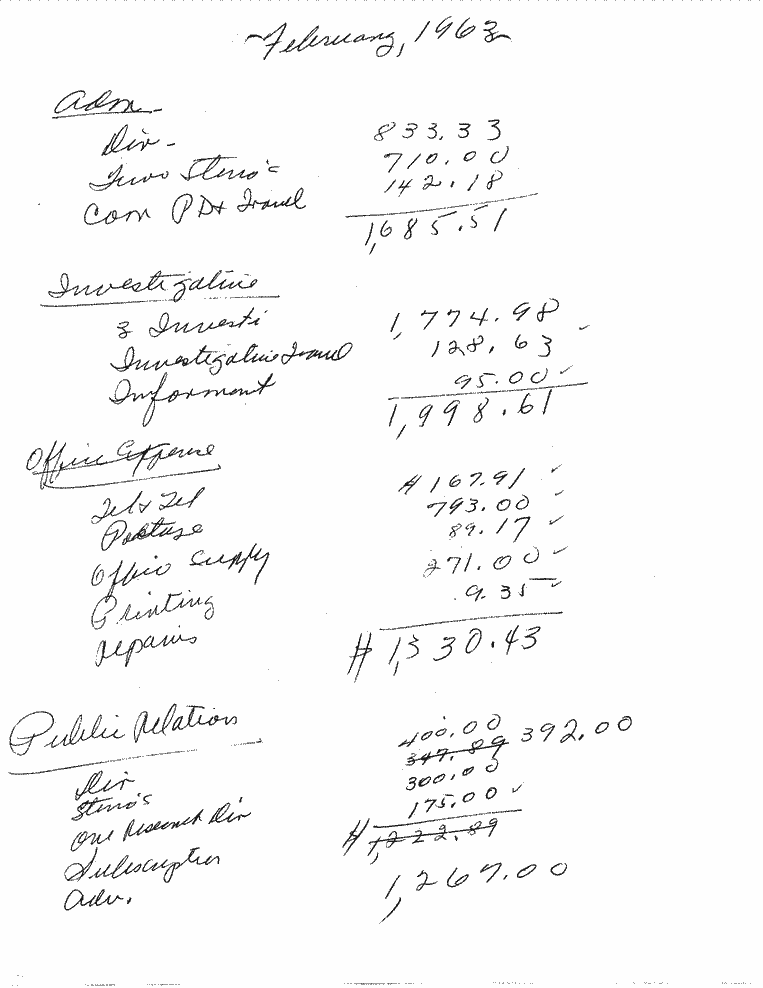 February, 1963
Adm
Dir - 833.33
Two Steno's 710.00
Com PD & Travel 142.18
1,685.51
Investigative
3 Investi 1,774.98
Investigative Travel 128.63 ✓
Informant 95.00 ✓
1,998.61
Office Expense
Tel & Tel # 167.91 ✓
Postage 793.00 ✓
Office Supply 89.17 ✓
Printing 271.00 ✓
repairs 9.35 ✓
# 1,330.43
Public Relation
Dir 400.00
Steno's 347.89 392.00
One Research Dir 300.00
Subscription 175.00 ✓
Adv.
# 1,222.89
1,267.00